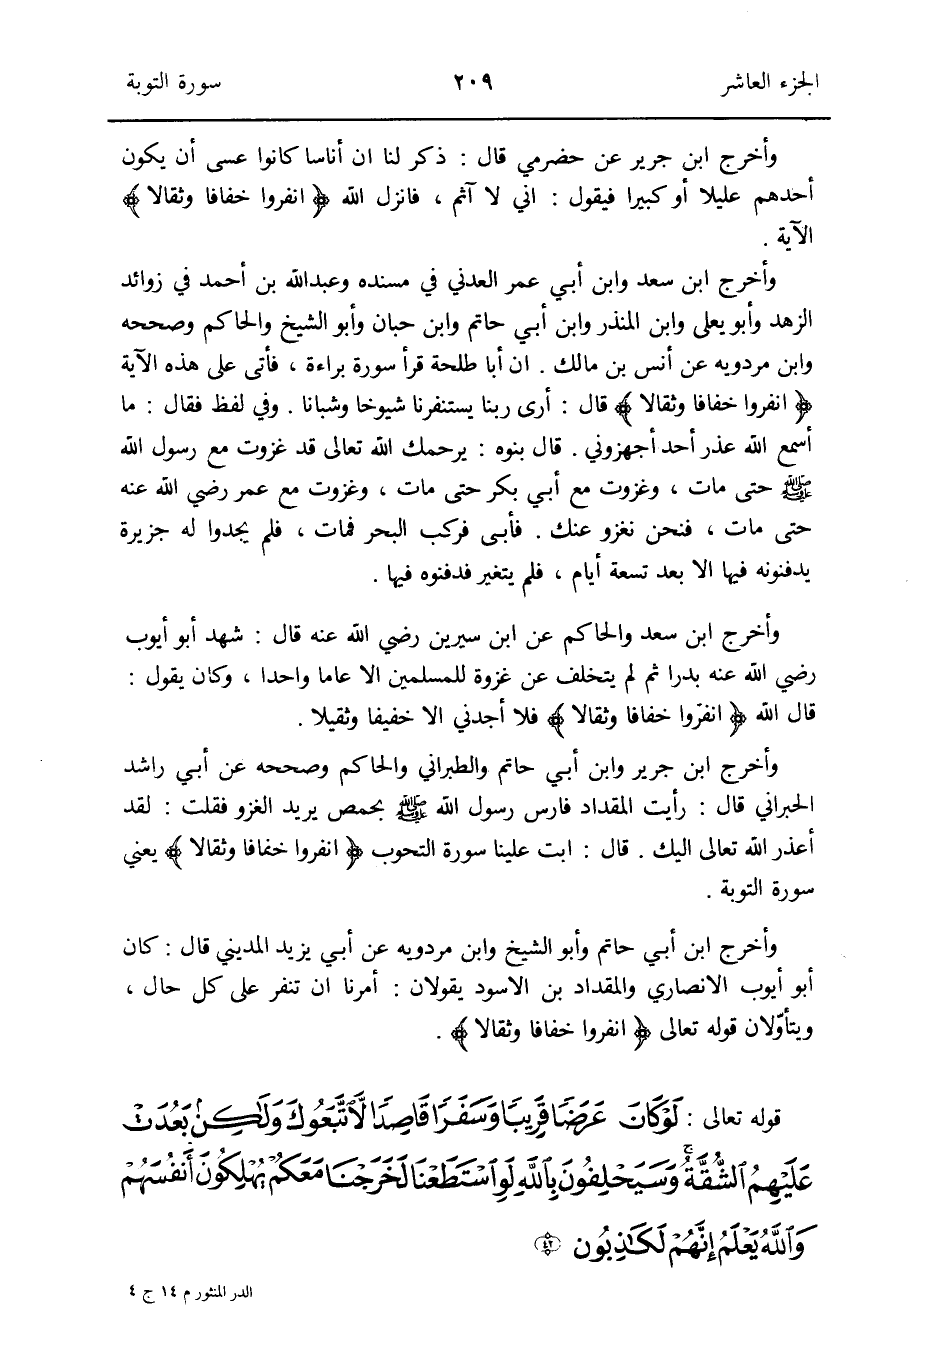 الجزء العاشر ٢٠٩ سورة التوبة
وأخرج ابن جرير عن حضرمي قال : ذكر لنا ان أناسا كانوا عسى أن يكون
أحدهم عليلا أو كبيرا فيقول : اني لا آثم ، فانزل الله ﴿ انفروا خفافا وثقالا ﴾
الآية .
وأخرج ابن سعد وابن أبي عمر العدني في مسنده وعبدالله بن أحمد في زوائد
الزهد وأبو يعلى وابن المنذر وابن أبي حاتم وابن حبان وأبو الشيخ والحاكم وصححه
وابن مردويه عن أنس بن مالك . ان أبا طلحة قرأ سورة براءة ، فأتى على هذه الآية
﴿ انفروا خفافا وثقالا ﴾ قال : أرى ربنا يستنفرنا شيوخا وشبانا . وفي لفظ فقال : ما
أسمع الله عذر أحد أجهزوني . قال بنوه : يرحمك الله تعالى قد غزوت مع رسول الله
ﷺ حتى مات ، وغزوت مع أبي بكر حتى مات ، وغزوت مع عمر رضي الله عنه
حتى مات ، فنحن نغزو عنك . فأبى فركب البحر فمات ، فلم يجدوا له جزيرة
يدفنونه فيها الا بعد تسعة أيام ، فلم يتغير فدفنوه فيها .
وأخرج ابن سعد والحاكم عن ابن سيرين رضي الله عنه قال : شهد أبو أيوب
رضي الله عنه بدرا ثم لم يتخلف عن غزوة للمسلمين الا عاما واحدا ، وكان يقول :
قال الله ﴿ انفرّوا خفافا وثقالا ﴾ فلا أجدني الا خفيفا وثقيلا .
وأخرج ابن جرير وابن أبي حاتم والطبراني والحاكم وصححه عن أبي راشد
الحبراني قال : رأيت المقداد فارس رسول الله ﷺ بحمص يريد الغزو فقلت : لقد
أعذر الله تعالى اليك . قال : ابت علينا سورة التحوب ﴿ انفروا خفافا وثقالا ﴾ يعني
سورة التوبة .
وأخرج ابن أبي حاتم وأبو الشيخ وابن مردويه عن أبي يزيد المديني قال : كان
أبو أيوب الانصاري والمقداد بن الاسود يقولان : أمرنا ان تنفر على كل حال ،
ويتأوّلان قوله تعالى ﴿ انفروا خفافا وثقالا ﴾ .
قوله تعالى : لَوْكَانَ عَرَضًا قَرِيبًا وَسَفَرًا قَاصِدًا لَّاتَّبَعُوكَ وَلَٰكِنۢ بَعُدَتْ
عَلَيْهِمُ ٱلشُّقَّةُ ۚ وَسَيَحْلِفُونَ بِٱللَّهِ لَوِ ٱسْتَطَعْنَا لَخَرَجْنَا مَعَكُمْ يُهْلِكُونَ أَنفُسَهُمْ
وَٱللَّهُ يَعْلَمُ إِنَّهُمْ لَكَٰذِبُونَ ٤٢
الدر المنثور م ١٤ ج ٤